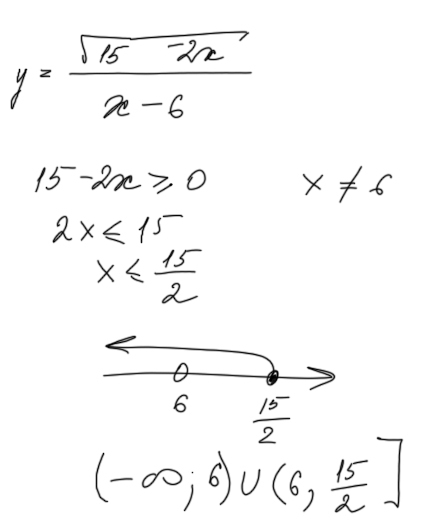 y = √(15 -2x) / (x - 6)
15 - 2x ⩾ 0   x ≠ 6
2x ⩽ 15
x ⩽ 15/2
6   15/2
(-∞; 6) ∪ (6, 15/2]